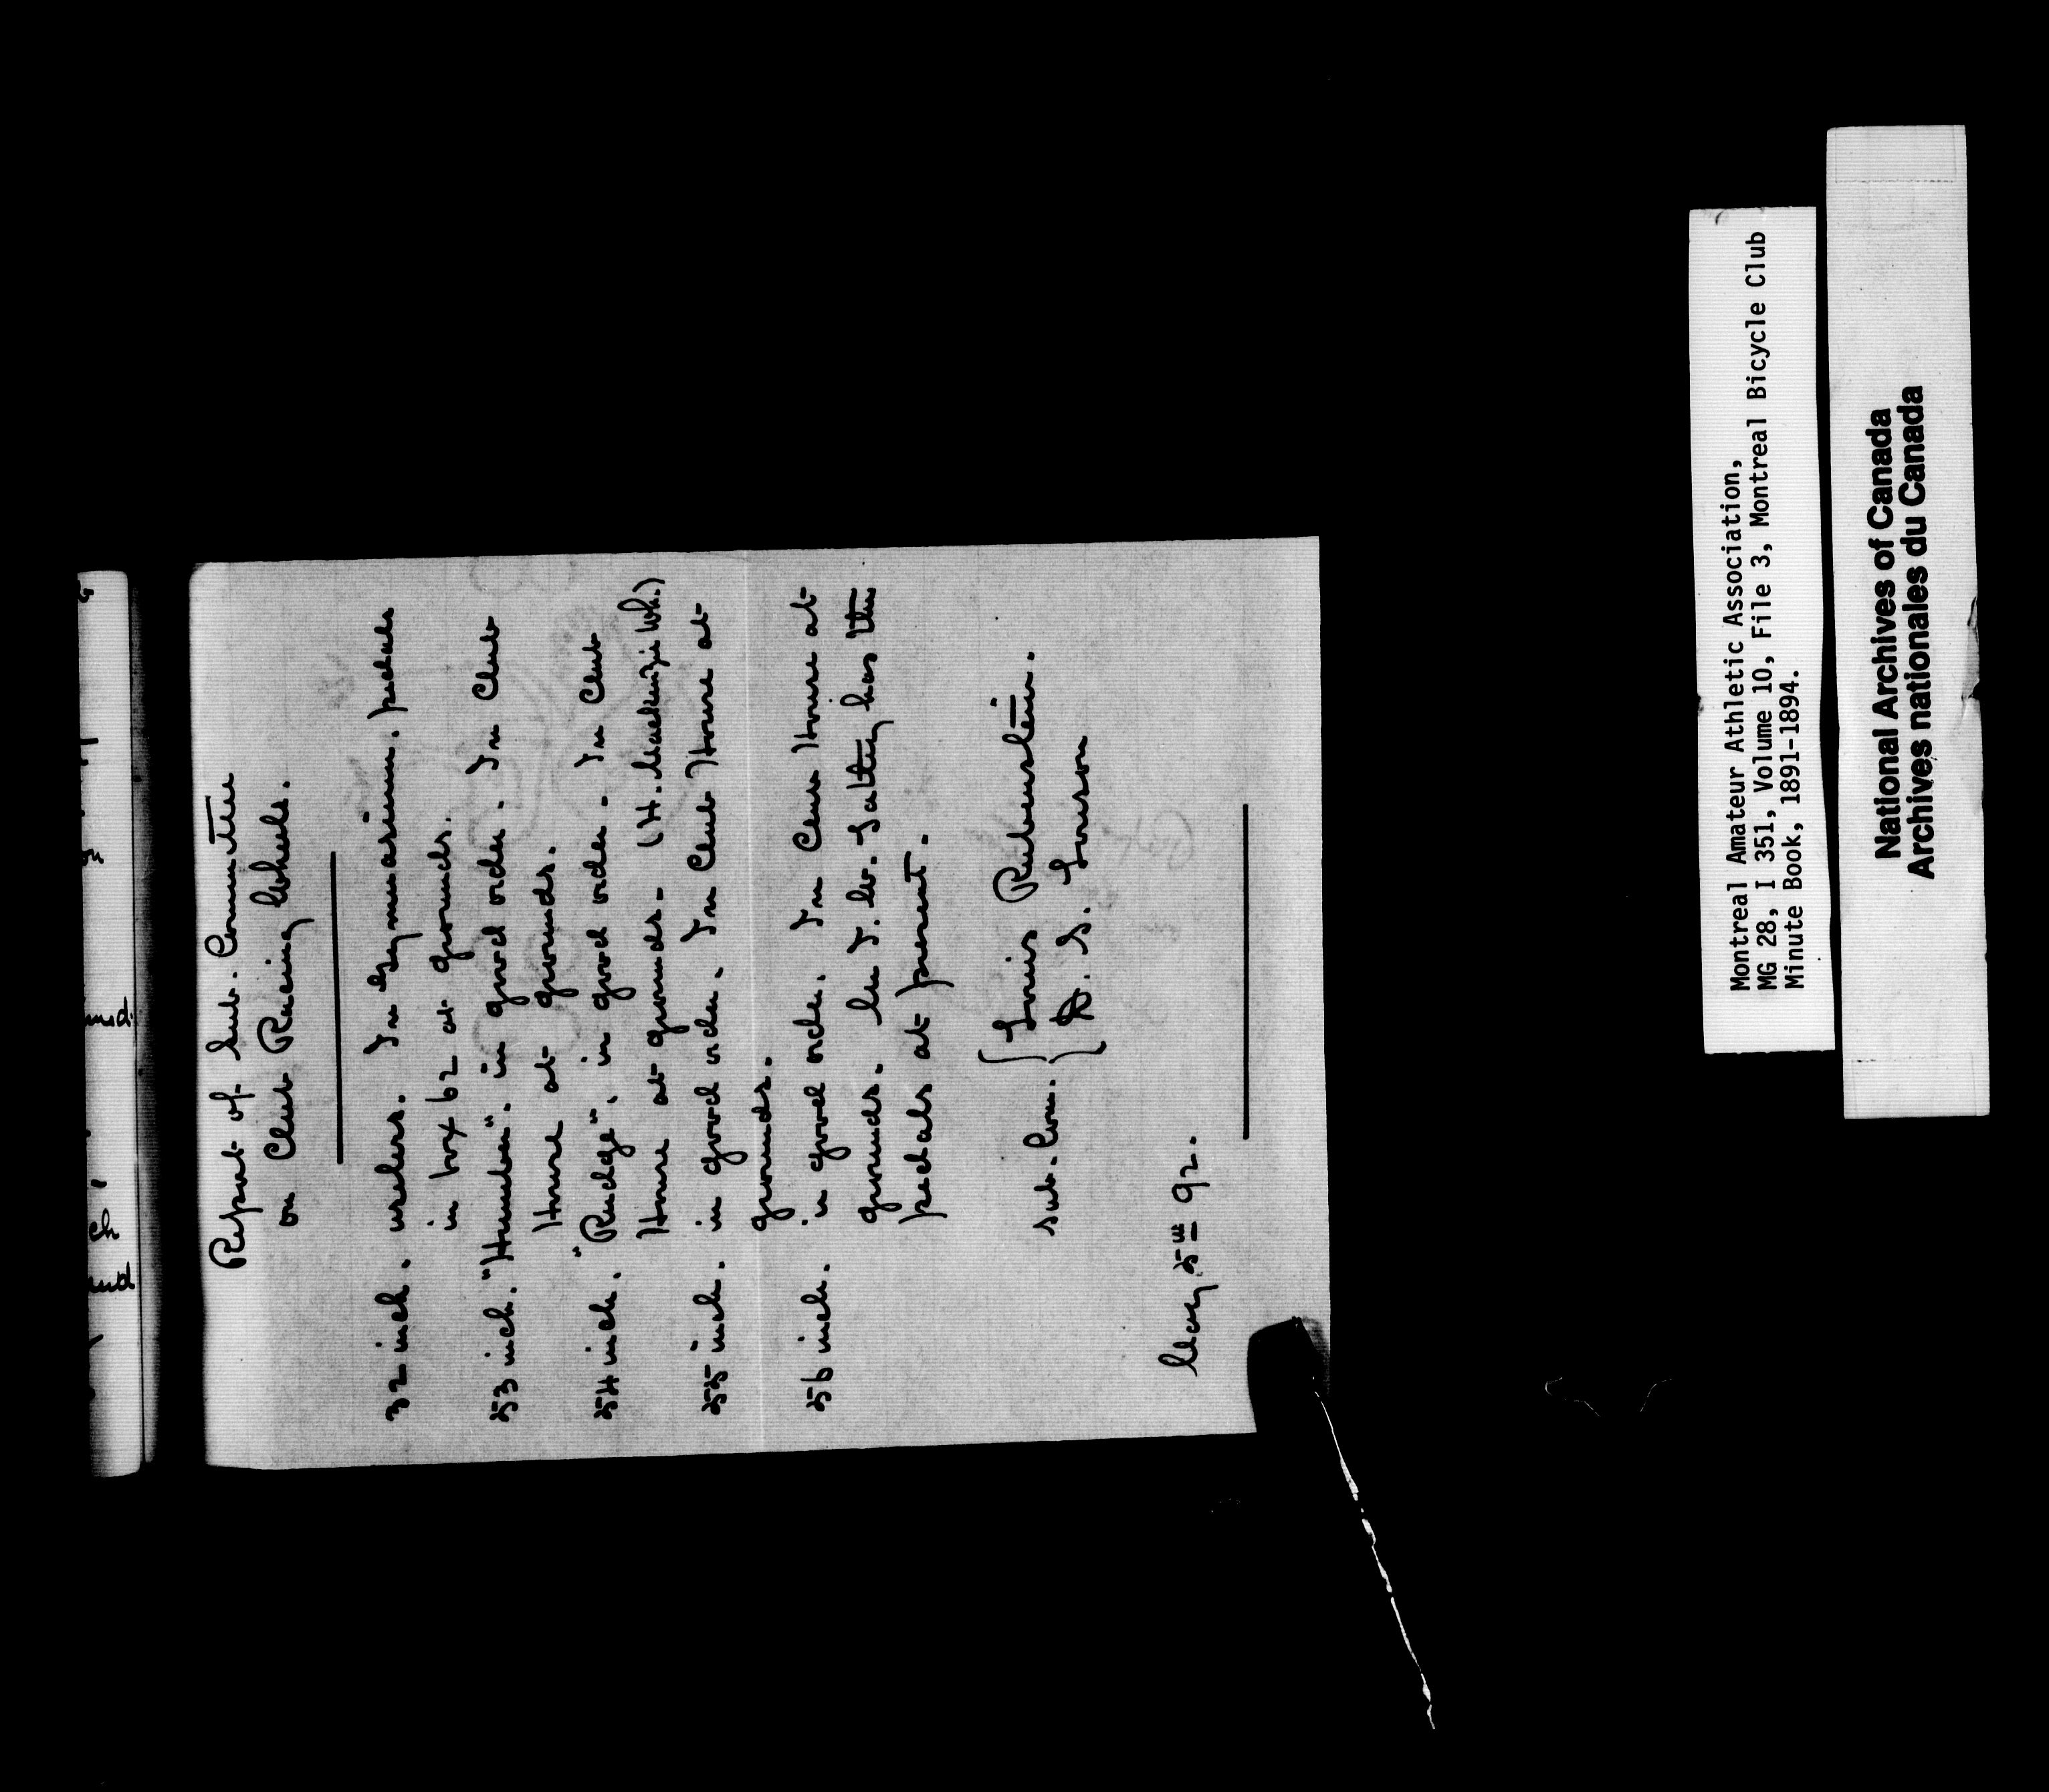 Report of Sub. Committee
on Club Racing Wheels.
32 inch. useless. In Gymnasium, pedals
in box 62 at grounds.
53 inch. "Humber". in good order. In Club
House at grounds.
54 inch. "Rudge". in good order - In Club
House at grounds - (H. Mackenzie Wh.)
55 inch. in good order. In Club House at
grounds.
56 inch. in good order. In Club House at
grounds. Mr J. W. has the
pedals at present.
Sub. Com. { Louis Rubenstein.
{ D. S. Louson
May 25th 92.
and
ch
Montreal Amateur Athletic Association,
MG 28, I 351, Volume 10, File 3, Montreal Bicycle Club
Minute Book, 1891-1894.
National Archives of Canada
Archives nationales du Canada